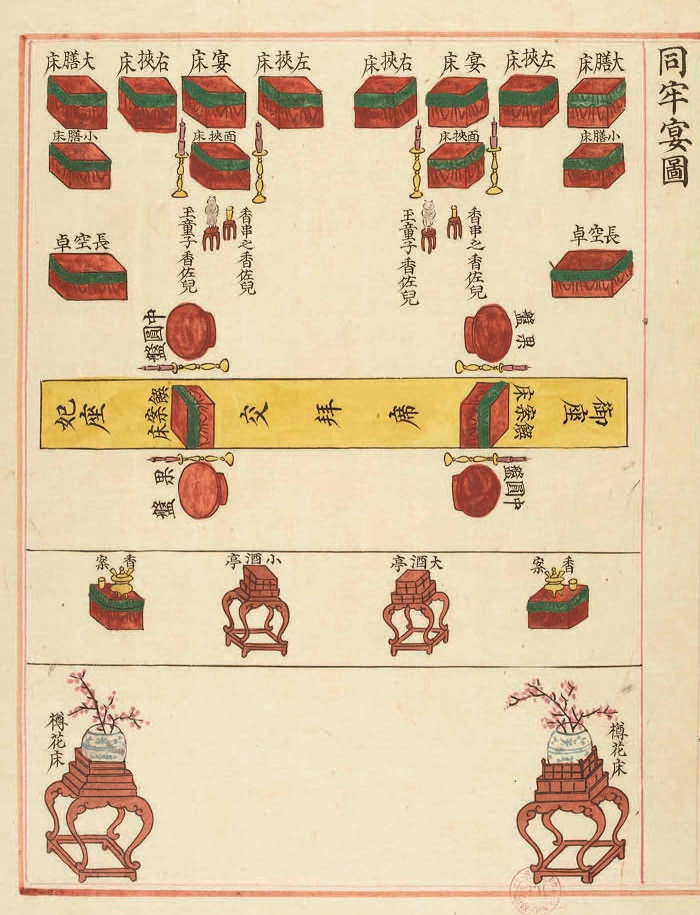 同牢宴圖
大膳床
左挾床
宴床
右挾床
左挾床
宴床
右挾床
大膳床
小膳床
面挾床
面挾床
小膳床
香串之香佐兒
玉童子香佐兒
香串之香佐兒
玉童子香佐兒
長空卓
長空卓
果盤
中圓盤
御座
饌案床
交拜席
饌案床
妃座
中圓盤
果盤
香案
大酒亭
小酒亭
香案
樽花床
樽花床